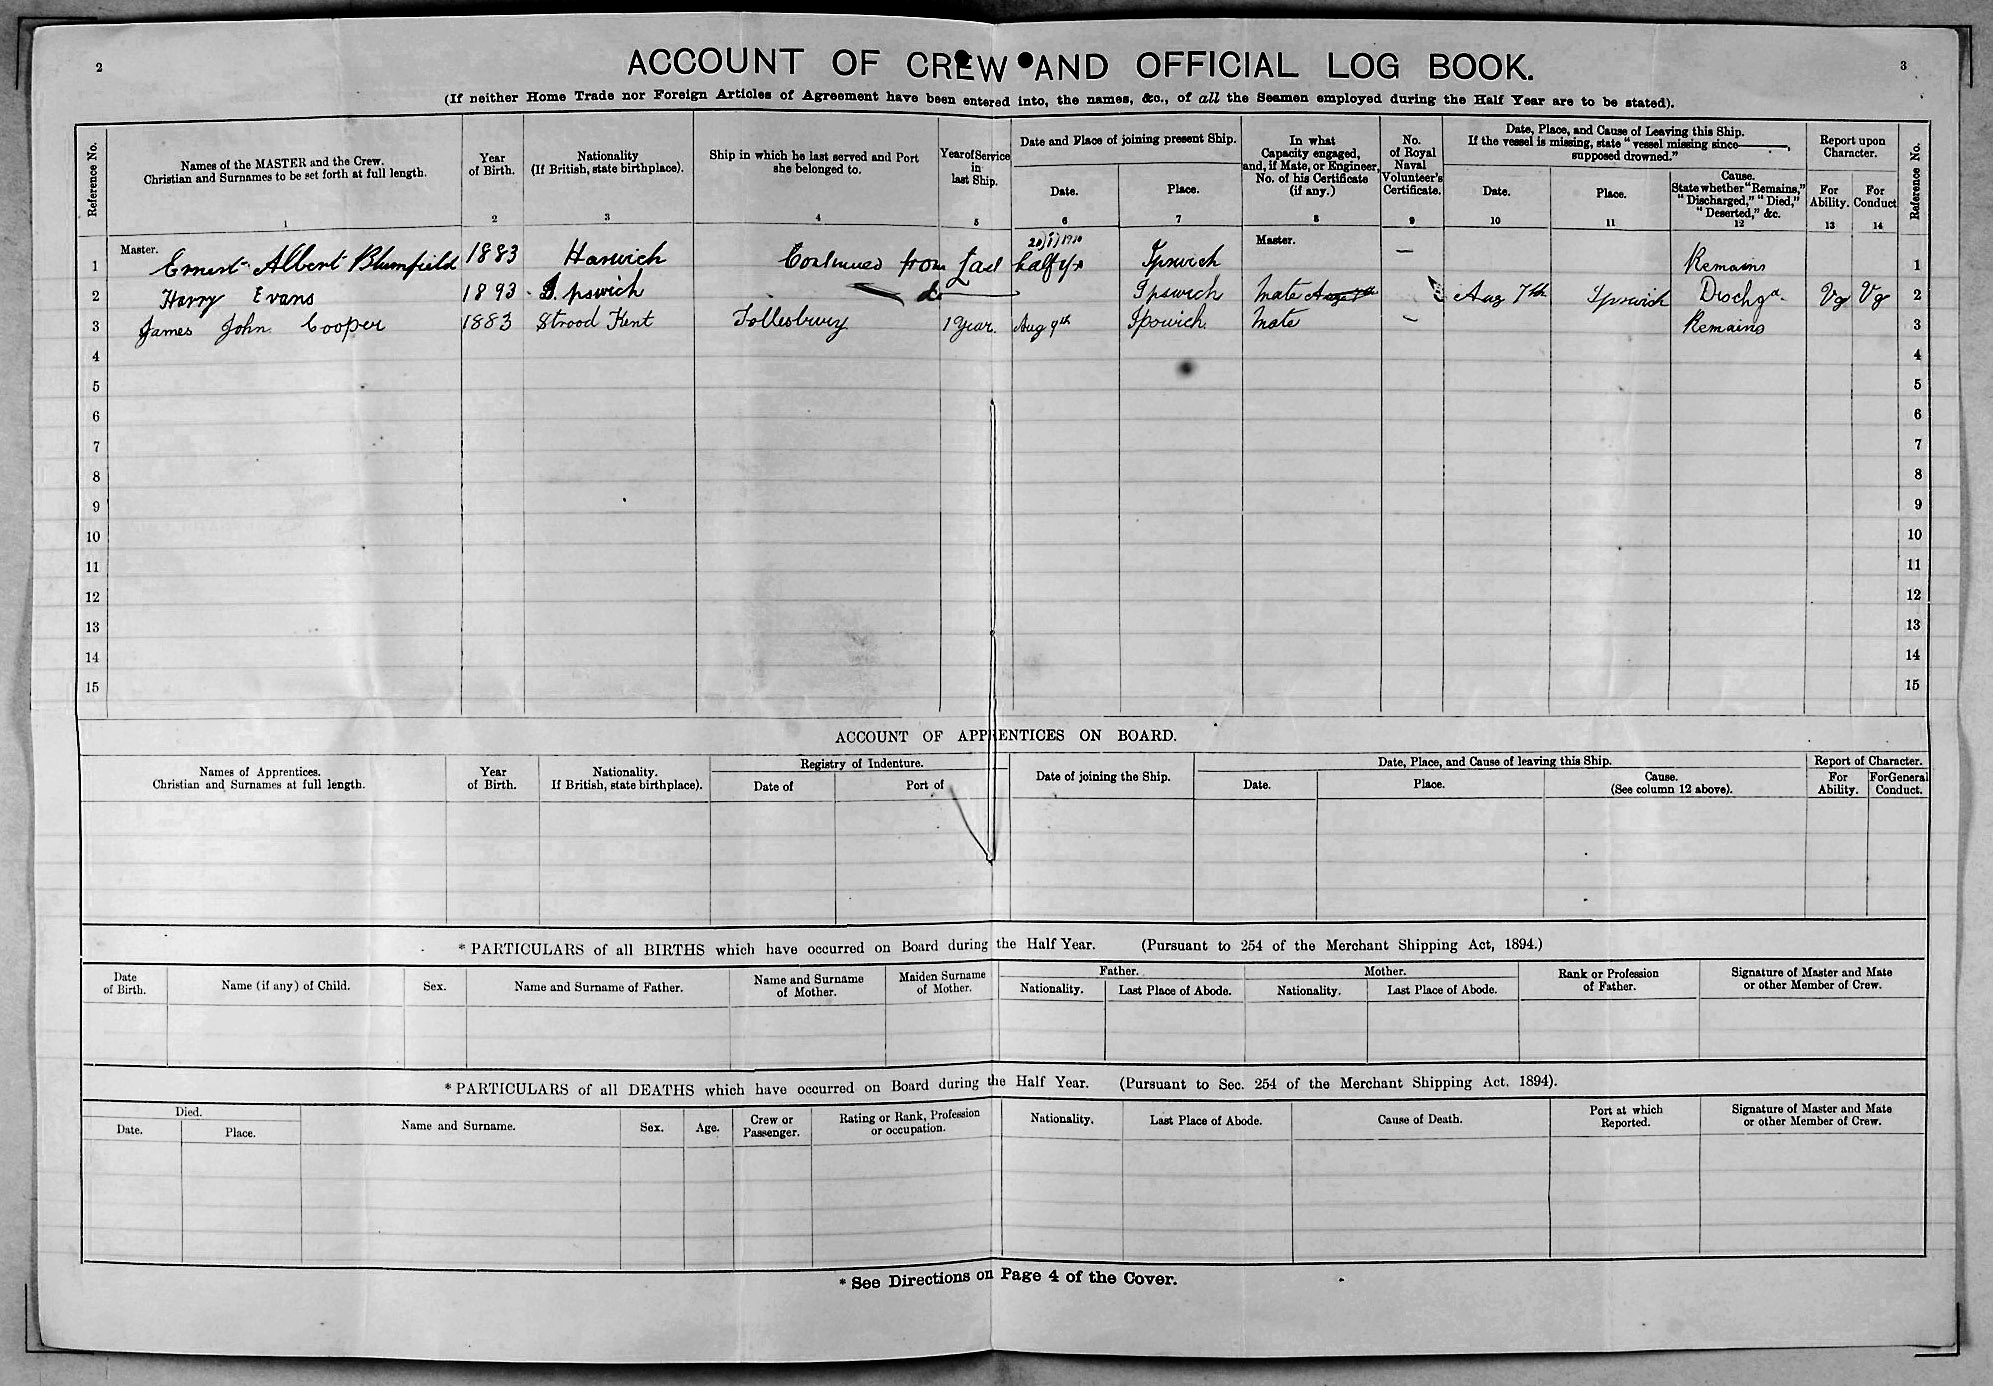 2
3
ACCOUNT OF CREW AND OFFICIAL LOG BOOK.
(If neither Home Trade nor Foreign Articles of Agreement have been entered into, the names, &c., of all the Seamen employed during the Half Year are to be stated).
Reference No.
Names of the MASTER and the Crew.
Christian and Surnames to be set forth at full length.
1
Year
of Birth.
2
Nationality
(If British, state birthplace).
3
Ship in which he last served and Port
she belonged to.
4
Year of Service
in
last Ship.
5
Date and Place of joining present Ship.
Date.
6
Place.
7
In what
Capacity engaged,
and, if Mate, or Engineer,
No. of his Certificate
(if any.)
8
No.
of Royal
Naval
Volunteer's
Certificate.
9
Date, Place, and Cause of Leaving this Ship.
If the vessel is missing, state "vessel missing since——,
supposed drowned."
Date.
10
Place.
11
Cause.
State whether "Remains,"
"Discharged," "Died,"
"Deserted," &c.
12
Report upon
Character.
For
Ability.
13
For
Conduct
14
Reference No.
1 Master. Ernest Albert Blumfield 1883 Harwich Continued from Last half yr Ipswich Master. — Remains 1
2 Harry Evans 1893 Ipswich do Ipswich Mate Aug 7th Aug 7th Ipswich Dischgd. Vg Vg 2
3 James John Cooper 1883 Strood Kent Tollesbury 1 Year. Aug 9th Ipswich Mate — Remains 3
4 4
5 5
6 6
7 7
8 8
9 9
10 10
11 11
12 12
13 13
14 14
15 15
ACCOUNT OF APPRENTICES ON BOARD.
Names of Apprentices.
Christian and Surnames at full length.
Year
of Birth.
Nationality.
If British, state birthplace).
Registry of Indenture.
Date of
Port of
Date of joining the Ship.
Date, Place, and Cause of leaving this Ship.
Date.
Place.
Cause.
(See column 12 above).
Report of Character.
For
Ability.
For General
Conduct.
*PARTICULARS of all BIRTHS which have occurred on Board during the Half Year. (Pursuant to 254 of the Merchant Shipping Act, 1894.)
Date
of Birth.
Name (if any) of Child.
Sex.
Name and Surname of Father.
Name and Surname
of Mother.
Maiden Surname
of Mother.
Father.
Nationality.
Last Place of Abode.
Mother.
Nationality.
Last Place of Abode.
Rank or Profession
of Father.
Signature of Master and Mate
or other Member of Crew.
*PARTICULARS of all DEATHS which have occurred on Board during the Half Year. (Pursuant to Sec. 254 of the Merchant Shipping Act, 1894).
Died.
Date.
Place.
Name and Surname.
Sex.
Age.
Crew or
Passenger.
Rating or Rank, Profession
or occupation.
Nationality.
Last Place of Abode.
Cause of Death.
Port at which
Reported.
Signature of Master and Mate
or other Member of Crew.
* See Directions on Page 4 of the Cover.